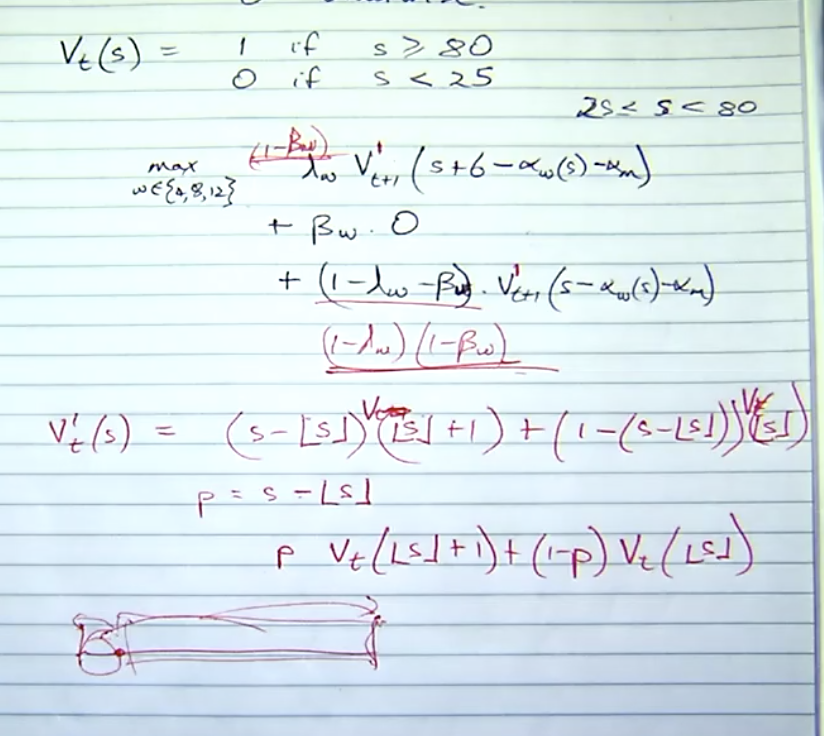 V_t(s) = 1 if s ≥ 80
0 if s < 25
25 ≤ s < 80
max w∈{4,8,12} (1-β_w) λ_w V'_{t+1} (s+6-α_w(s)-α_m)
+ β_w . 0
+ (1-λ_w-β_w) . V'_{t+1} (s-α_w(s)-α_m)
(1-λ_w)(1-β_w)
V'_t(s) = (s-⌊s⌋) V_t (⌊s⌋+1) + (1-(s-⌊s⌋)) V_t (⌊s⌋)
p = s - ⌊s⌋
p V_t (⌊s⌋+1) + (1-p) V_t (⌊s⌋)